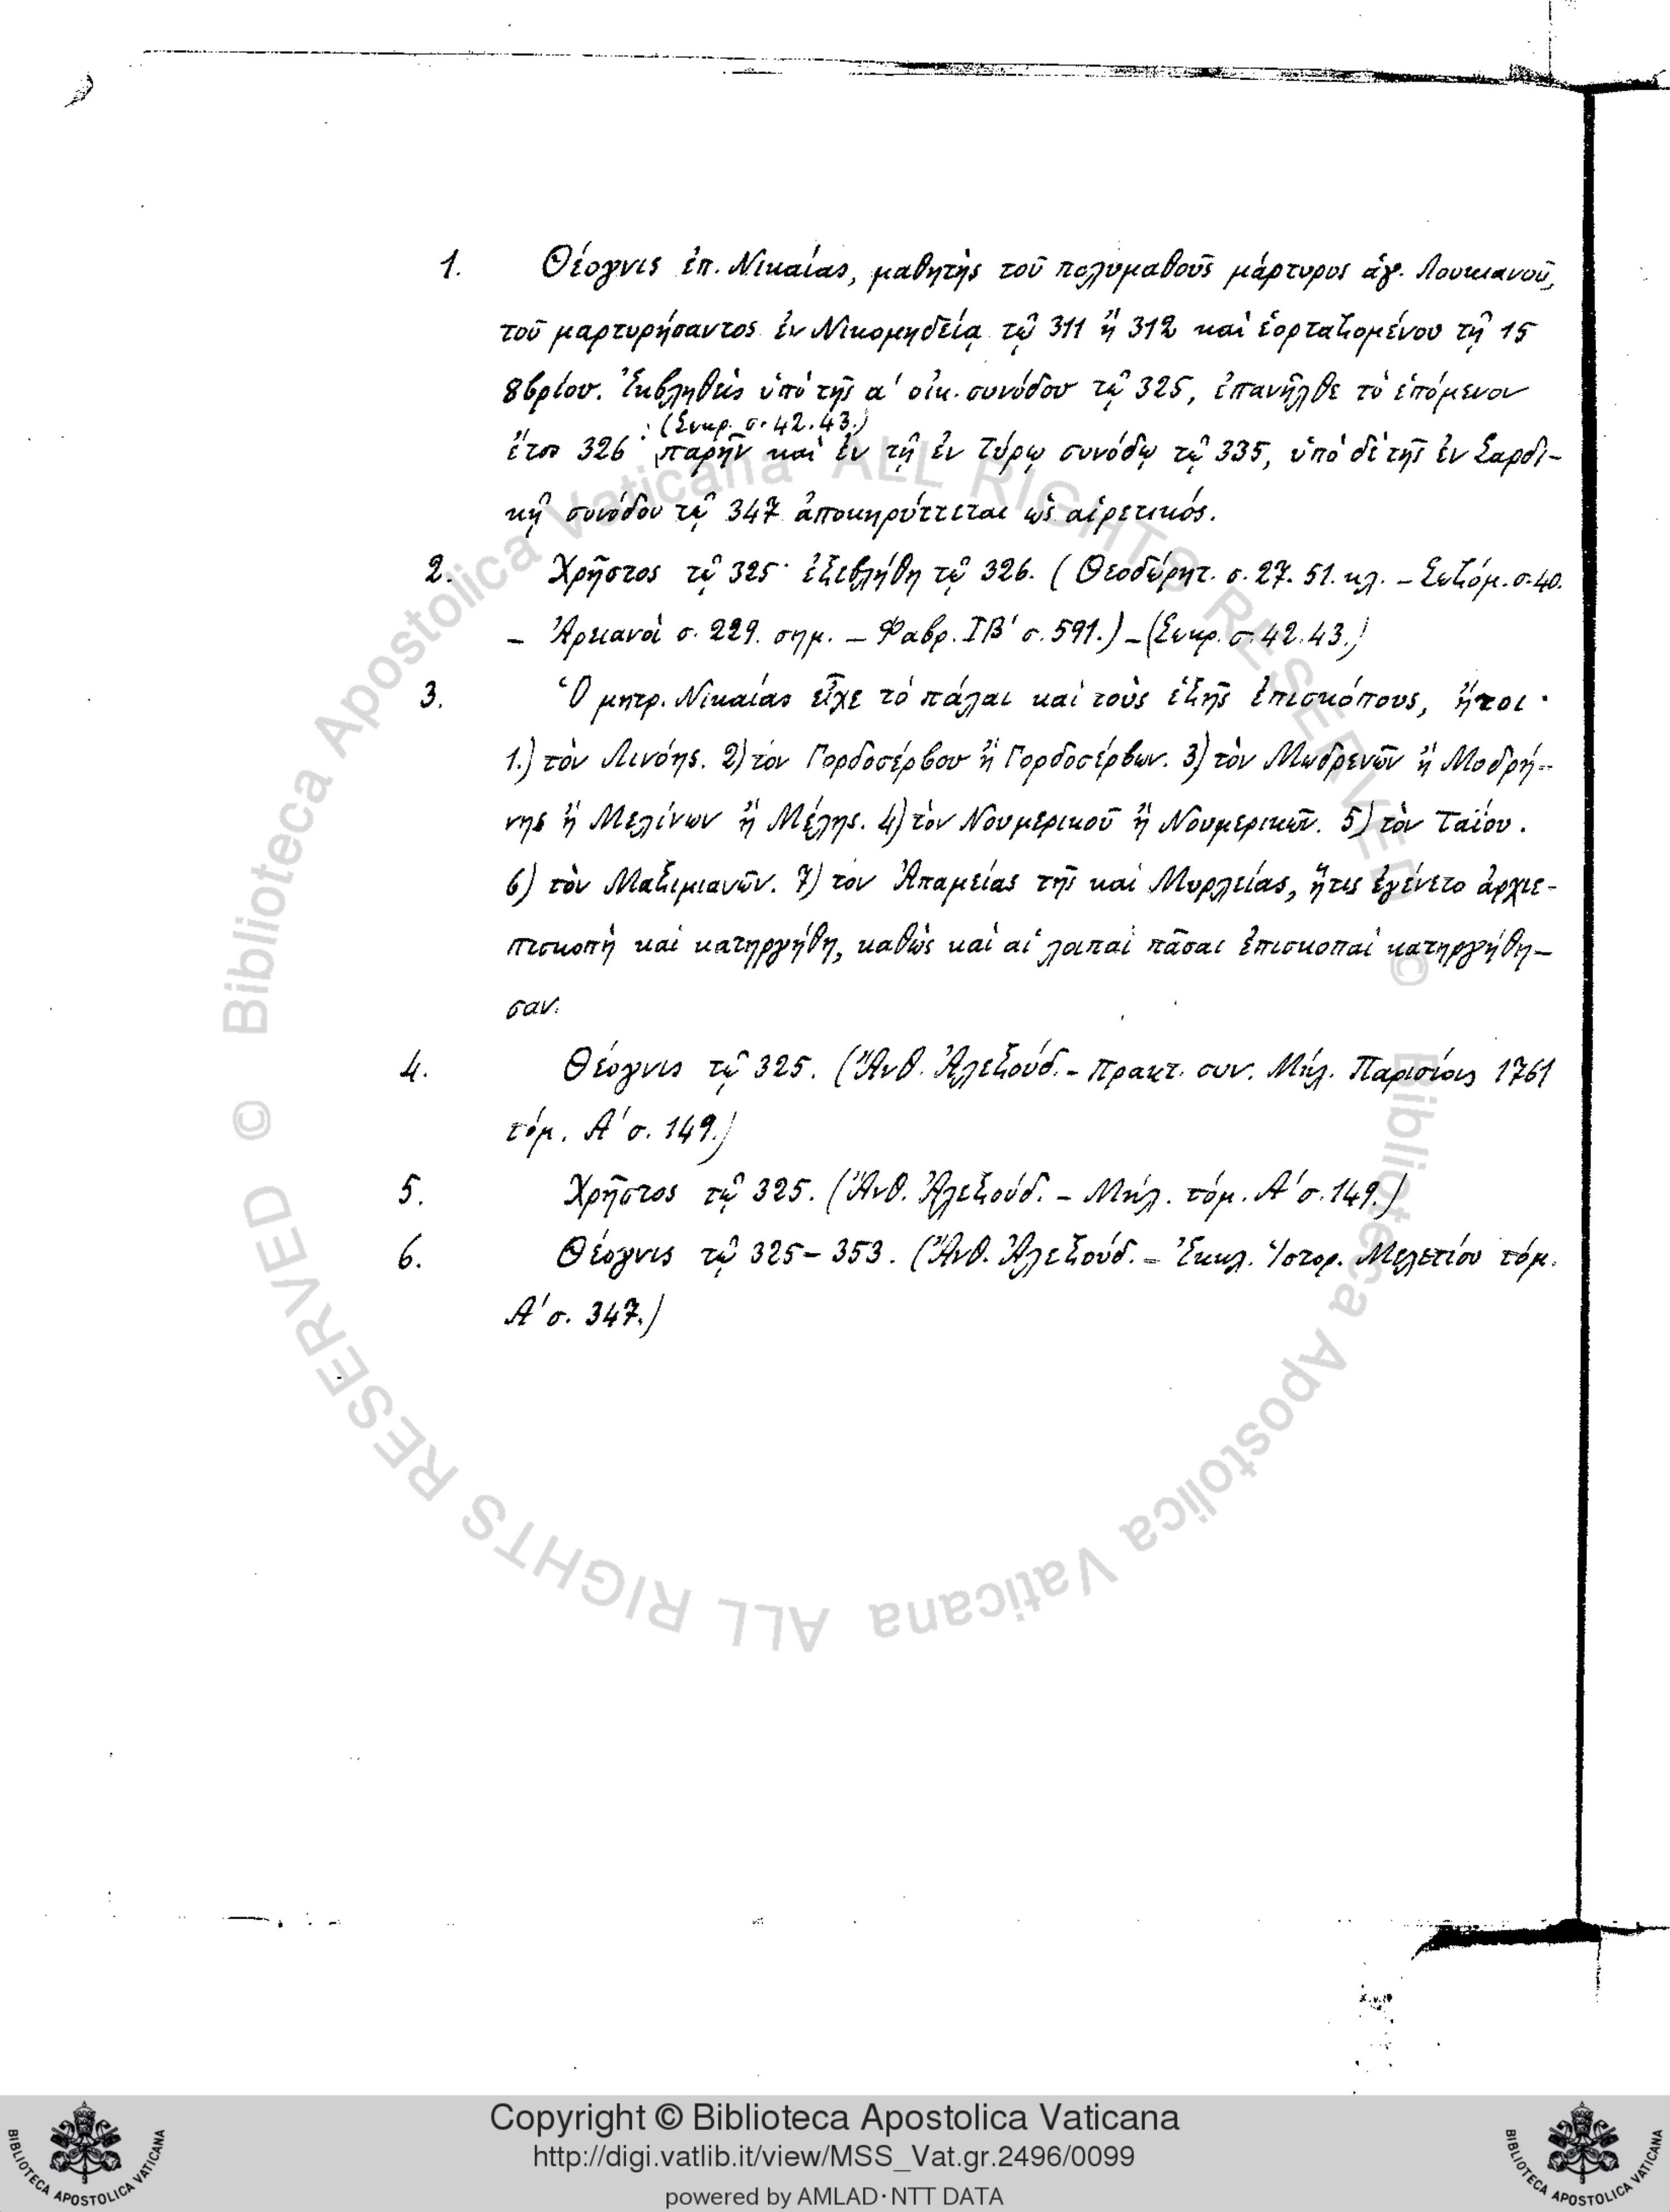 1. Θέογνις ἐπ. Νικαίας, μαθητὴς τοῦ πολυμαθοῦς μάρτυρος ἁγ. Λουκιανοῦ,
τοῦ μαρτυρήσαντος ἐν Νικομηδείᾳ τῷ 311 ἢ 312 καὶ ἑορταζομένου τῇ 15
8βρίου. Ἐκβληθεὶς ὑπὸ τῆς α' οἰκ. συνόδου τῷ 325, ἐπανῆλθε τὸ ἑπόμενον
(Συκρ. σ. 42.43.)
ἔτος 326· παρῆν καὶ ἐν τῇ ἐν Τύρῳ συνόδῳ τῷ 335, ὑπὸ δὲ τῆς ἐν Σαρδι-
κῇ συνόδου τῷ 347 ἀποκηρύττεται ὡς αἱρετικός.
2. Χρῆστος τῷ 325· ἐξεβλήθη τῷ 326. (Θεοδώρητ. σ. 27. 51. κλ. – Σωζόμ. σ. 40.
– Ἀρειανοὶ σ. 229. σημ. – Φαβρ. ΙΒ' σ. 591.) – (Συκρ. σ. 42.43.)
3. Ὁ μητρ. Νικαίας εἶχε τὸ πάλαι καὶ τοὺς ἑξῆς ἐπισκόπους, ἤτοι·
1.) τὸν Λινόης. 2) τὸν Γορδοσέρβου ἢ Γορδοσέρβων. 3) τὸν Μωδρενῶν ἢ Μοδρή-
νης ἢ Μελίνων ἢ Μέλης. 4) τὸν Νουμερικοῦ ἢ Νουμερικῶν. 5) τὸν Ταΐου.
6) τὸν Μαξιμιανῶν. 7) τὸν Ἀπαμείας τῆς καὶ Μυρλείας, ἥτις ἐγένετο ἀρχιε-
πισκοπὴ καὶ κατηργήθη, καθὼς καὶ αἱ λοιπαὶ πᾶσαι ἐπισκοπαὶ κατηργήθη-
σαν.
4. Θέογνις τῷ 325. (Ἄνθ. Ἀλεξούδ. – Πρακτ. συν. Μήλ. Παρισίοις 1761
τόμ. Α' σ. 149.)
5. Χρῆστος τῷ 325. (Ἄνθ. Ἀλεξούδ. – Μήλ. τόμ. Α' σ. 149.)
6. Θέογνις τῷ 325–353. (Ἄνθ. Ἀλεξούδ. – Ἐκκλ. Ἱστορ. Μελετίου τόμ.
Α' σ. 347.)
© Biblioteca Apostolica Vaticana ALL RIGHTS RESERVED
© Biblioteca Apostolica Vaticana ALL RIGHTS RESERVED
Copyright © Biblioteca Apostolica Vaticana
http://digi.vatlib.it/view/MSS_Vat.gr.2496/0099
powered by AMLAD·NTT DATA
BIBLIOTECA APOSTOLICA VATICANA
BIBLIOTECA APOSTOLICA VATICANA